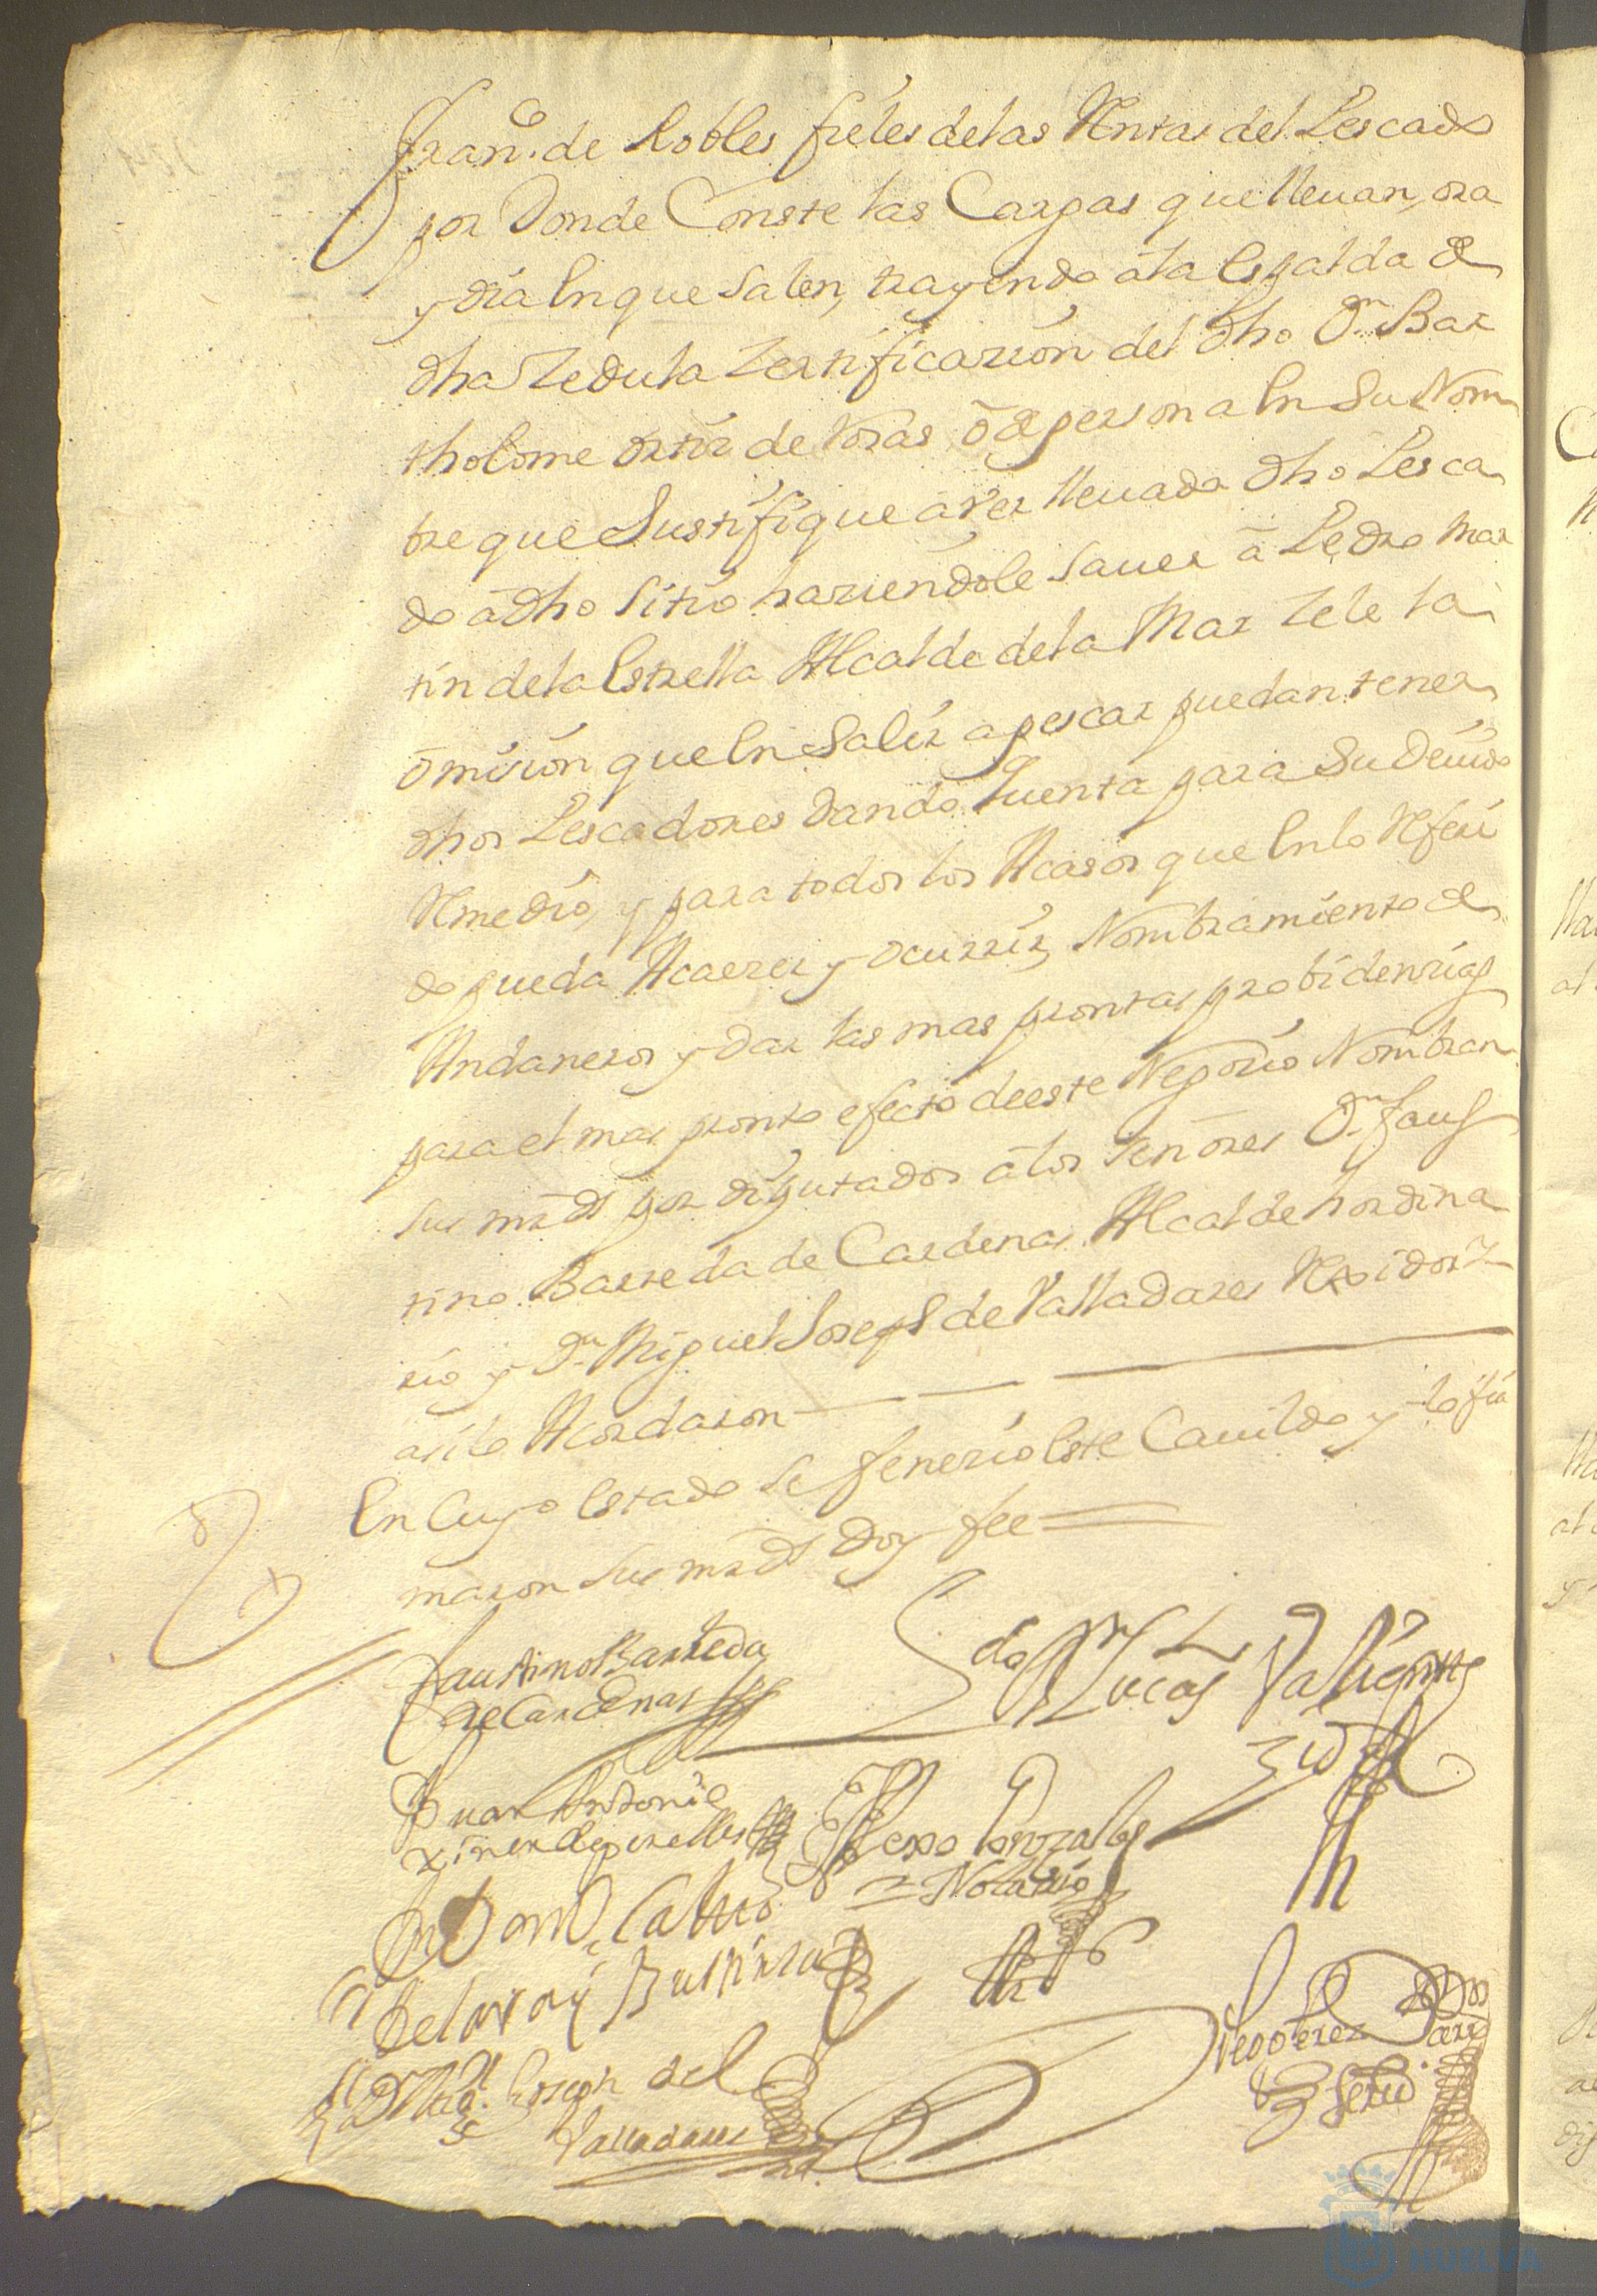 Fran.co de Robles fieles de las Rentas del Pescado
por Donde Conste las Cargas que lleuan, ora
y dia En que Salen, trayendo â la Espalda de
dha Zedula Zertificazion del dho D.n Bar
tholome ortiz de Voras, ô de persona En Su Nom
bre que Justifique aver lleuado dho Pesca
do â dho Sitio haziendole Sauer â Pedro Mar
tin de la Estrella Alcalde de la Mar Zele la
omision que En Salir a pescar puedan tener
dhos Pescadores Dando Quenta para Su Deuido
Remedio, y para todos los Acasos que En lo Referi
do pueda Acaezer y ocurrir, Nombramiento de
Andaneros y dar las mas prontas probidenzias
para el mas pronto efecto de este Negozio Nombran
sus mrds por diputados â los Señores D.n faus
tino Barreda de Cardenas Alcalde hordina
rio y D.n Miguel Joseph de Valladares Rexidor Z
asi lo Acordaron
En Cuyo Estado Se fenezio Este Cauildo y lo fir
maron Sus mrds Doy fee
Faustino Barreda
de Cardenas
Ldo Lucas Valiente
Juan Antonio
Alexo Gonzales
Notario
Beltran Bustinza
D. Mig.l Joseph del
Valladares
Diego Perez
HUELVA